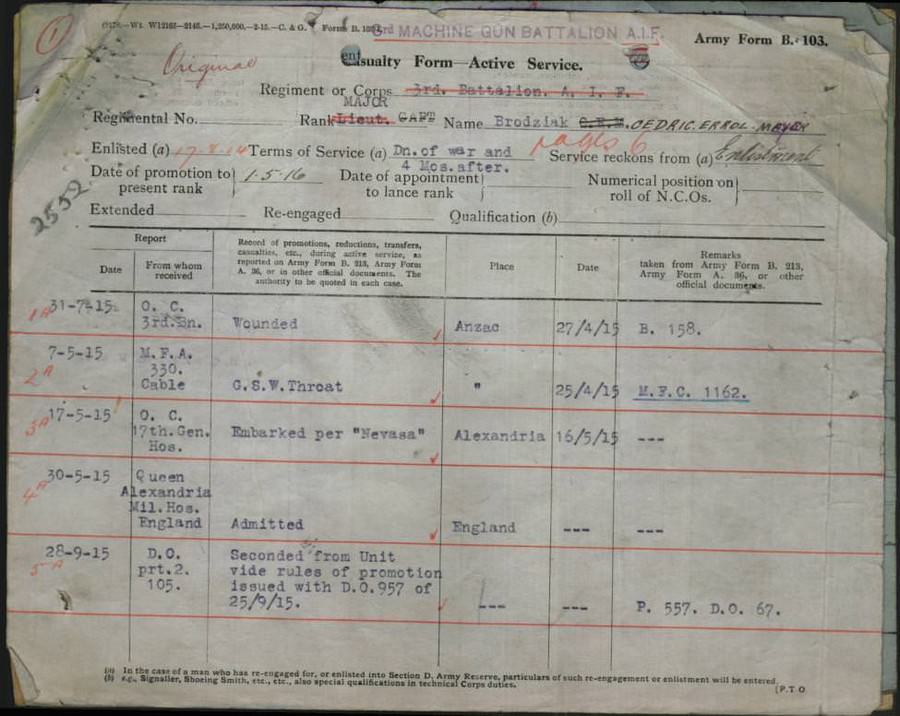 1
W12165—2146.—1,250,000.—2-15.—C. & G. Forms B. 103
3rd MACHINE GUN BATTALION A.I.F.
Army Form B. 103.
Original
Casualty Form—Active Service.
Regiment or Corps 3rd. Battalion. A. I. F.
MAJOR
Regimental No. Rank Lieut. CAPT Name Brodziak C.E.M. CEDRIC.ERROL-MEYER
pages 6
Enlisted (a) 17-8-14 Terms of Service (a) Dn. of war and 4 Mos. after. Service reckons from (a) Enlistment
Date of promotion to present rank 1-5-16 Date of appointment to lance rank Numerical position on roll of N.C.Os.
2552
Extended Re-engaged Qualification (b)
Report
Date
From whom received
Record of promotions, reductions, transfers, casualties, etc., during active service, as reported on Army Form B. 213, Army Form A. 36, or in other official documents. The authority to be quoted in each case.
Place
Date
Remarks taken from Army Form B. 213, Army Form A. 36, or other official documents.
1A 31-7-15 O. C.
3rd.Bn. Wounded Anzac 27/4/15 B. 158.
7-5-15 M.F.A.
2A 330.
Cable G.S.W.Throat " 25/4/15 M.F.C. 1162.
3A 17-5-15 O. C.
17th.Gen. Embarked per "Nevasa" Alexandria 16/5/15 ---
Hos.
30-5-15 Queen
4A Alexandria
Mil.Hos.
England Admitted England --- ---
28-9-15 D.O. Seconded from Unit
5A prt.2. vide rules of promotion
105. issued with D.O.957 of
25/9/15. --- --- P. 557. D.O. 67.
(a) In the case of a man who has re-engaged for, or enlisted into Section D, Army Reserve, particulars of such re-engagement or enlistment will be entered.
(b) e.g., Signaller, Shoeing Smith, etc., etc., also special qualifications in technical Corps duties.
[P.T.O